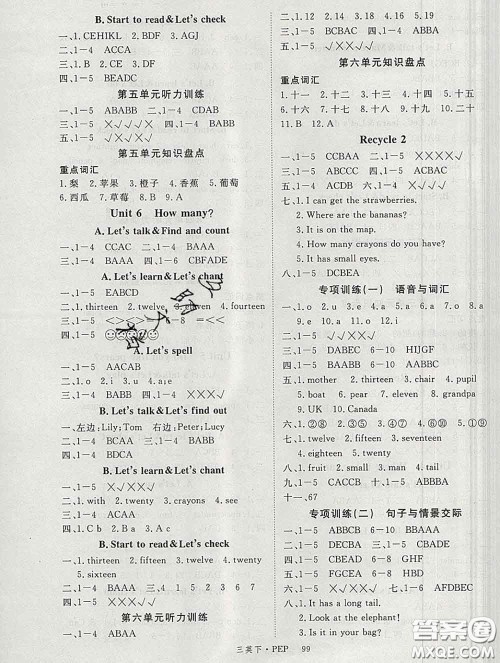 B. Start to read&Let's check
一、1.CEHIKL 2.BDF 3.AGJ
二、1-4 ACCA
三、1.B 2.CE 3.F 4.AD
四、1-5 BEADC
第五单元听力训练
一、1-5 ABABB 二、1-4 CDAB
三、1-5 ×√√√× 四、1-4 BABA
五、1-5 √××√√
第五单元知识盘点
重点词汇
1.梨 2.苹果 3.橙子 4.香蕉 5.葡萄
6.西瓜 7.草莓 8.C 9.B 10.A
Unit 6 How many?
A. Let's talk&Find and count
一、1-4 CCAC 二、1-4 BAAA
三、1-4 BAAB 四、1-6 CBFADE
A. Let's learn&Let's chant
一、1-5 EABCD
二、1.thirteen 2.twelve 3.eleven 4.fourteen
A. Let's spell
一、1-5 AACAB
二、1.o 2.u 3.i 4.a;e
三、1.e 2.a 3.i 4.u
四、1-4 ×××√
B. Let's talk&Let's find out
一、左边:Lily;Tom 右边:Peter;Lucy
二、1-4 BCAA 三、1-4 BAAB
四、1-4 BDCA
B. Let's learn&Let's chant
一、1-5 √×××√
二、1.with 2.twenty 3.crayons 4.see
三、1-4 BAAB
四、1-4 BCAD
B. Start to read&Let's check
一、1.thirteen 2.eighteen 3.twelve 4.twenty
5.sixteen
三、1-4 BAAA
四、1-5 √××√×
第六单元听力训练
二、1.20 2.14 3.16 4.12 5.19
三、1-5 BCBAC 四、1-4 ABBA
五、1-5 √×√×√
第六单元知识盘点
重点词汇
1.十一 2.十二 3.十三 4.十四 5.十五
6.十六 7.十七 8.十八 9.十九 10.二十
11.B 12.A
Recycle 2
一、1-5 CCBAA 二、1-5 BBACC
三、1-5 ABCCC 四、1-5 ACABC
五、1-4 ACDB 六、1-5 ×√××√
七、1.I can get the strawberries.
2.Where are the bananas?
3.It is on the map.
4.How many crayons do you have?
5.It has small eyes.
八、1-5 DCBEA
专项训练(一) 语音与词汇
三、1-5 ××√×√
四、1-5 DABEC 6-10 HIJGF
五、1.mother 2.thirteen 3.chair 4.pupil
5.boat 6.pear 7.boy 8.twenty
9.UK 10.Canada
七、1.twelve 2.fifteen 3.seventeen
4.eighteen 5.twenty
十一、67
专项训练(二) 句子与情景交际
一、1-5 ABBCB 6-10 BBAAA
四、1-5 CBEAD 五、1-5 CBAED
六、1-5 FGCEA 6-10 JHBDI
七、1-5 CEBAD 八、1-6 AFDBEC
九、1.It has a long tail.
2.I can get the elephant.
3.Is it in your bag?
三英下·PEP 99
答案圈
MXQE.COM